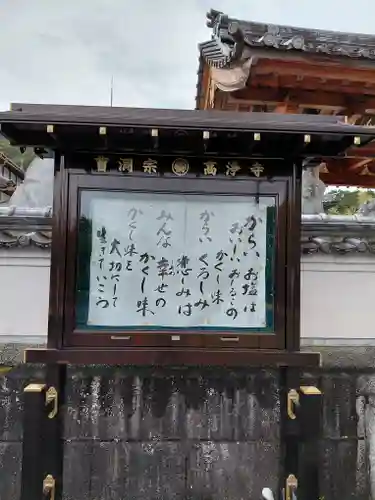 曹洞宗 高浄寺
からいお塩は
おいしいお汁この
かくし味
からいくるしみ
悲しみは
みんな幸せの
かくし味
かくし味を
大切にして
生きていこう